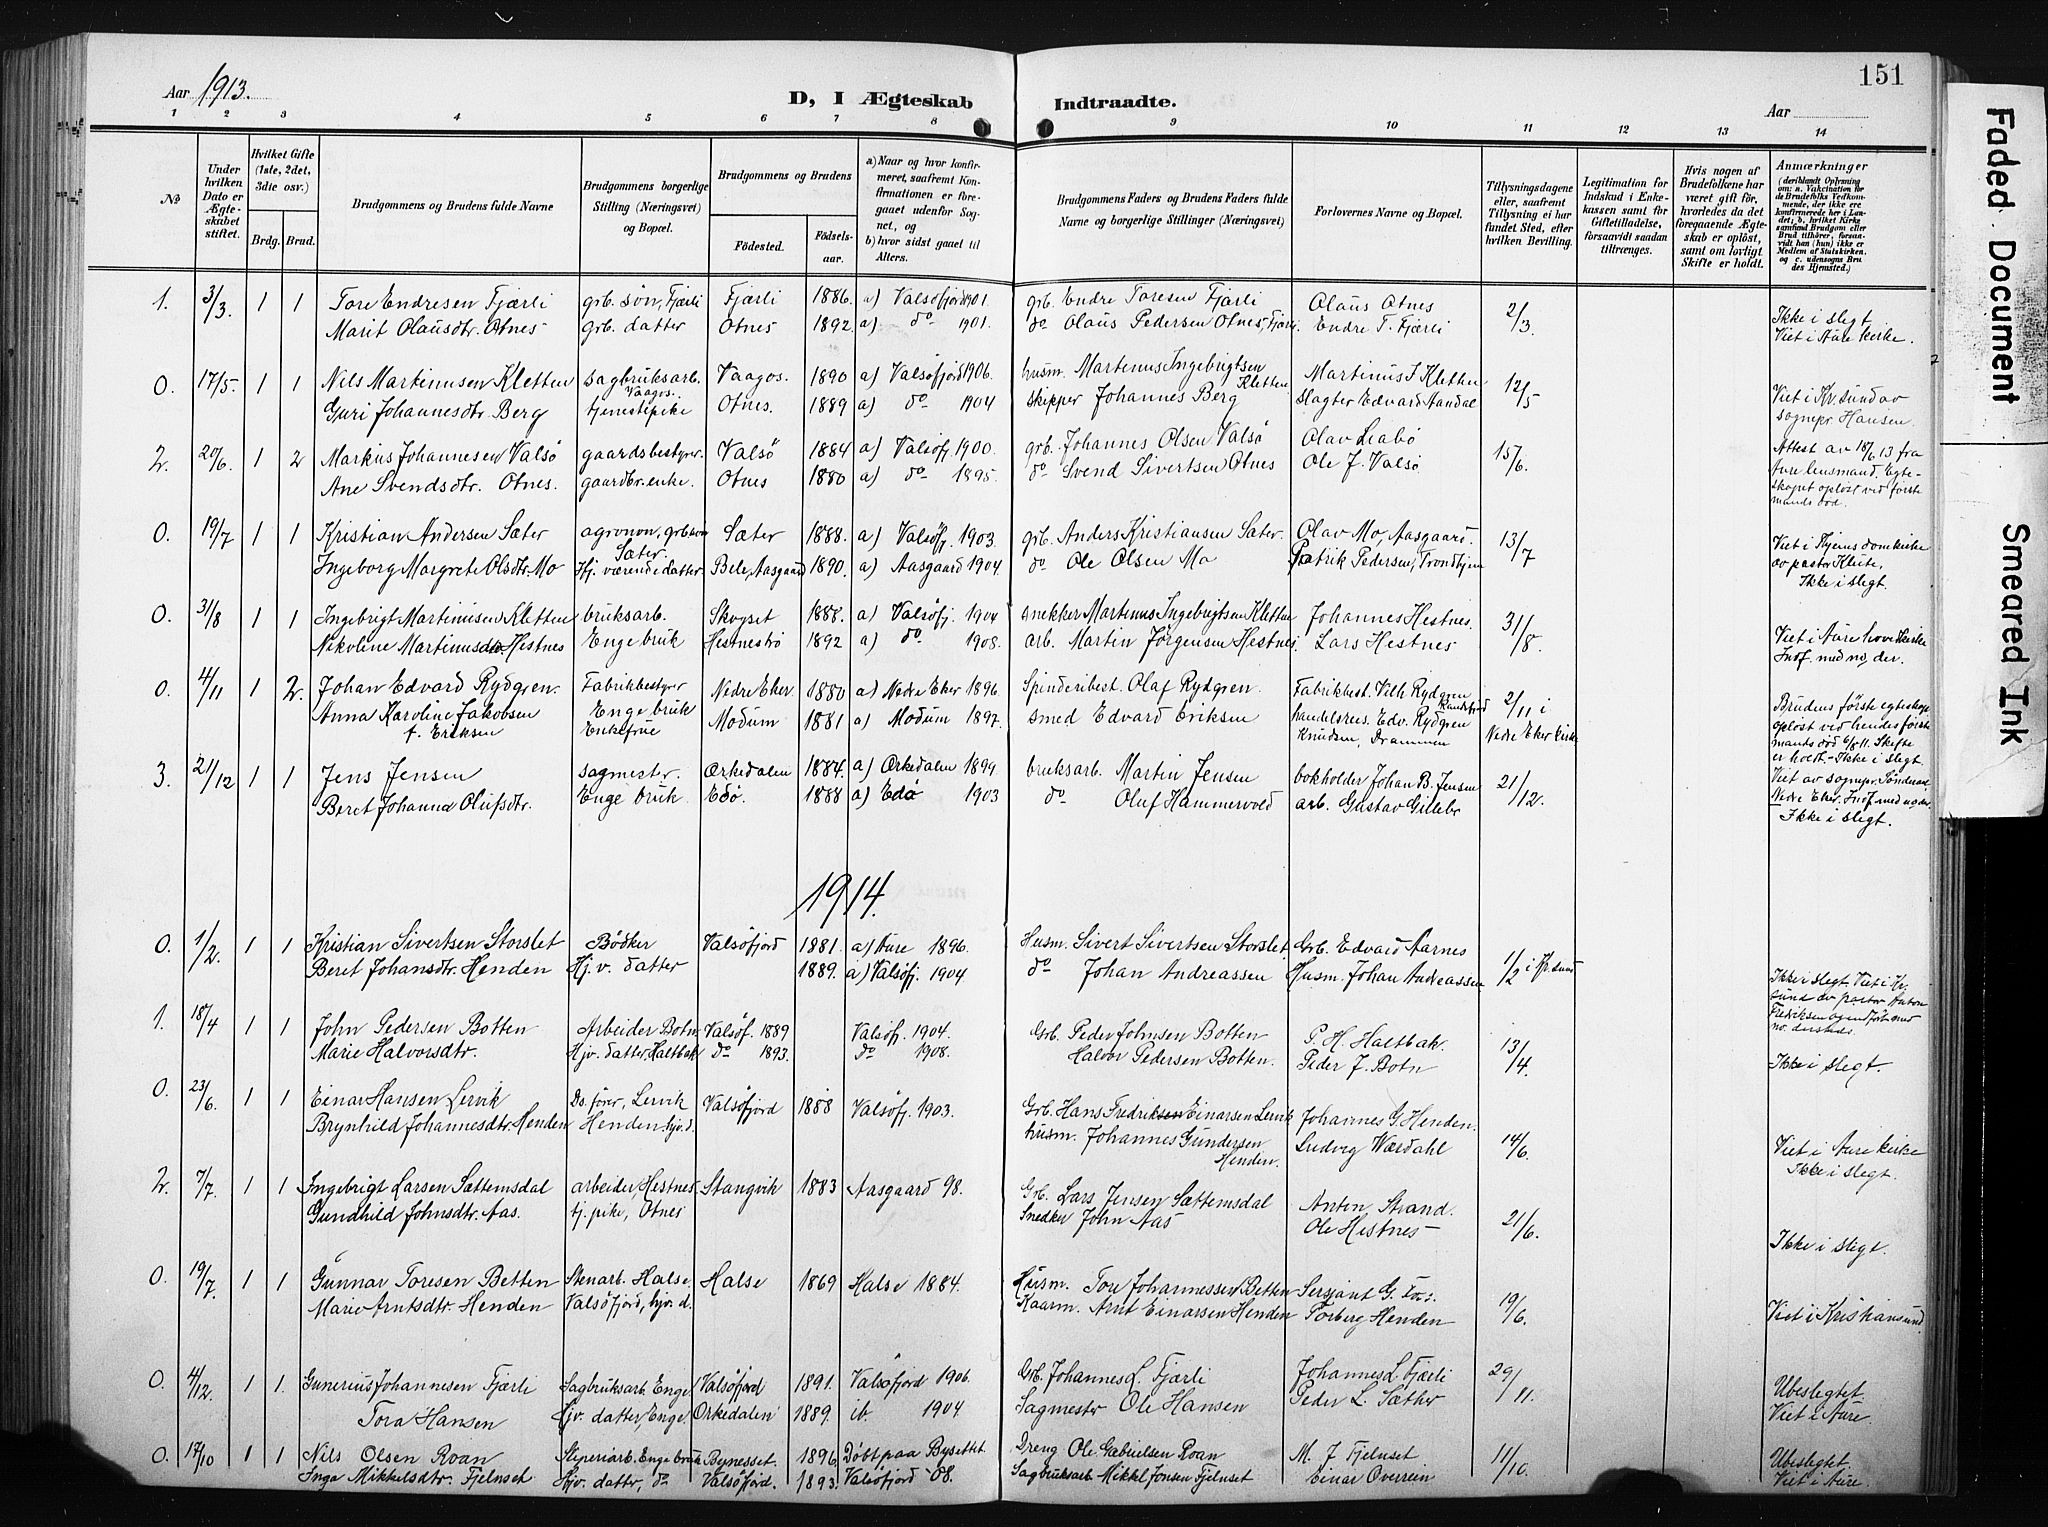 151
Aar 1913.
D, I Ægteskab Indtraadte.
Aar
1 2 3 4 5 6 7 8 9 10 11 12 13 14
No
Under hvilken Dato er Ægteskabet stiftet.
Hvilket Gifte (1ste, 2det, 3die osv.)
Brdg. Brud.
Brudgommens og Brudens fulde Navne
Brudgommens borgerlige Stilling (Næringsvei) og Bopæl.
Brudgommens og Brudens
Fødested. Fødselsaar.
a) Naar og hvor konfirmeret, saafremt Konfirmationen er foregaaet udenfor Sognet, og
b) hvor sidst gaaet til Alters.
Brudgommens Faders og Brudens Faders fulde Navne og borgerlige Stillinger (Næringsvei)
Forlovernes Navne og Bopæl.
Tillysningsdagene eller, saafremt Tillysning ei har fundet Sted, efter hvilken Bevilling.
Legitimation for Indskud i Enkekassen samt for Giftetilladelse, forsaavidt saadan tiltrænges.
Hvis nogen af Brudefolkene har været gift før, hvorledes da det foregaaende Ægteskab er opløst, samt om lovligt Skifte er holdt.
Anmærkninger
(deriblandt Oplysning om: a. Vakcination for de Brudefolks Vedkommende, der ikke ere konfirmerede her i Landet; b. hvilket Kirkesamfund Brudgom eller Brud tilhører, forsaavidt han (hun) ikke er Medlem af Statskirken, og c. udensogns Brudes Hjemsted.)
1. 3/3. 1 1 Tore Endresen Fjærli grb. søn, Fjærli Fjærli 1886. a) Valsøfjord 1901. grb. Endre Toresen Fjærli Olaus Otnes 2/3
Marit Olausdtr. Otnes grb. datter Otnes 1892. a) do 1901. do Olaus Pedersen Otnes, Fjærli. Endre T. Fjærli Ikke i slegt
Viet i Aure kirke.
0. 17/5. 1 1 Nils Martinusen Kletten sagbruksarb. Vaagos. Vaagos. 1890 a) Valsøfjord 1906. husm. Martinus Ingebrigtsen Kletten Martinus I Kletten 12/5
Guri Johannesdtr. Berg tjenestepike Otnes. 1889 a) do 1904 skipper Johannes Berg slagter Edvard Aandal Viet i Kr.sund av
sognepr. Hansen.
2. 20/6. 1 2 Markus Johannesen Valsø gaardsbestyrer Valsø 1884 a) Valsøfj. 1900. grb. Johannes Olsen Valsø Olav Leabø 15/6. Attest av 18/6 13 fra
Ane Svendsdtr. Otnes. gaardbr. enke. Otnes 1880 a) do 1895. do Svend Sivertsen Otnes Ole J. Valsø Aure lensmand. Egte-
skapet opløst ved første
mands død.
0. 19/7 1 1 Kristian Andersen Sæter agronom, grb.søn Sæter. Sæter 1888. a) Valsøfj. 1903. grb. Anders Kristiansen Sæter. Olav Mo, Aasgaard 13/7
Ingeborg Margrete Olsdtr. Mo Hj. værende datter Bele, Aasgaard 1890. a) Aasgaard 1904. do Ole Olsen Mo Patrik Pedersen, Trondhjem Viet i Thjems domkirke
av pastor Kleite,
Ikke i slegt.
0. 31/8 1 1 Ingebrigt Martinusen Kletten bruksarb. Skogset 1888. a) Valsøfj. 1904 snekker Martinus Ingebrigtsen Kletten Johannes Hestnes. 31/8.
Nikoline Martinusdtr. Hestnes Enge bruk Hestnesbø 1892 a) do 1908. arb. Martin Jørgensen Hestnes Lars Hestnes Viet i Aure hovedkirke
Indf. med no. der.
0. 4/11 1 2. Johan Edvard Rydgren. Fabrikbestyrer Nedre Eker. 1880 a) Nedre Eker 1896. Spinderibest. Olaf Rydgren. Fabrikbest. Vilh. Rydgren 2/11 i
Anna Karoline Jakobsen Enge bruk Modum 1881 a) Modum 1897. smed Edvard Eriksen handelsreis. Edv. Rydgren Nedre Eker kirke
f. Eriksen Enkefrue Knudsen, Drammen Brudens første egteskap
opløst ved hendes første
mands død 6/8 11. Skifte
er holdt. – Ikke i slegt.
Viet av sognepr. Tønder
Nedre Eker. Indf. med no der.
3. 21/12 1 1 Jens Jensen sagmester. Orkedalen 1884. a) Orkedalen 1899. bruksarb. Martin Jensen bokholder Johan B. Jensen 21/12.
Beret Johanna Olufsdtr. Enge bruk. Edø. 1888 a) Edø 1903 do Oluf Hammervold arb. Gustav Gillebr Ikke i slegt.
1914.
0. 1/2. 1 1 Kristian Sivertsen Storslet Bødker Valsøfjord 1881. a) Aure 1896. Husm. Sivert Sivertsen Storslet. Grb. Edvard Aarnes 1/2 i Kr.sund
Beret Johansdtr. Henden Hj. v. datter 1889. a) Valsøfj. 1904 do Johan Andreassen Husm. Johan Andreassen Ikke i slegt. Viet i Kr.
sund av pastor Anton
Fredriksen og indført med
no. dersteds.
1. 18/4 1 1 John Pedersen Botten Arbeider Botn Valsøf. 1889 Valsøfj. 1904. Grb. Peder Johnsen Botten P. H. Haltbak. 13/4.
Marie Halvorsdtr. Hjv. datter Haltbak do 1893. do 1908. Halvor Pedersen Botten. Peder J. Botn Ikke i slegt.
0. 23/6. 1 1 Einar Hansen Lervik Ds. fører, Lervik Valsøfjord 1888 Valsøfj. 1903. Grb. Hans Fredriksen Einarsen Lervik Johannes G. Henden. 14/6.
Brynhild Johannesdtr. Henden Henden. hjv. d. husm. Johannes Gundersen Henden. Ludvig Wærdahl Viet i Aure kirke
Ikke i slegt.
2. 7/7. 1 1 Ingebrigt Larsen Sættemsdal arbeider, Hestnes Stangvik 1883 Aasgaard 98. Grb. Lars Jensen Sættemsdal Anton Strand. 21/6.
Gundhild Johnsdtr. Aas. tj. pike, Otnes Snedker John Aas Ole Hestnes Ikke i slegt.
0. 19/7. 1 1 Gunnar Toresen Betten Stenarb. Halse. Halse 1869 Halse 1884. Husm. Tore Johannessen Betten Sersjant G. 19/6.
Marie Arntsdtr. Henden Valsøfjord, hjv. d. Kaarm. Arnt Einarsen Henden Torberg Henden Viet i Kristiansund.
0. 4/12. 1 1. Gunerius Johannesen Fjærli Sagbruksarb. Enge Valsøfjord 1891. Valsøfjord 1906. Grb. Johannes L. Fjærli Johannes L Fjærli 29/11.
Tora Hansen Hjv. datter, Enge Orkedalen 1889. ib. 1904. Sagmester Ole Hansen Peder L. Sæther Ubeslegtet.
Viet i Aure.
0. 17/10 1 1 Nils Olsen Roan Støperiarb. Enge bruk Bynesset. 1896. Døbt paa Bynesset. Dreng Ole Gabrielsen Roan M. J Fjelnset 11/10. Ubeslegtet.
Inga Mikkelsdtr. Fjelnset Hjv. datter, do Valsøfjord. 1893. Valsøfjord 08. Sagbruksarb. Mikkel Jonsen Fjelnset Einar Overrein Viet i Aure.
Faded Document
Smeared Ink